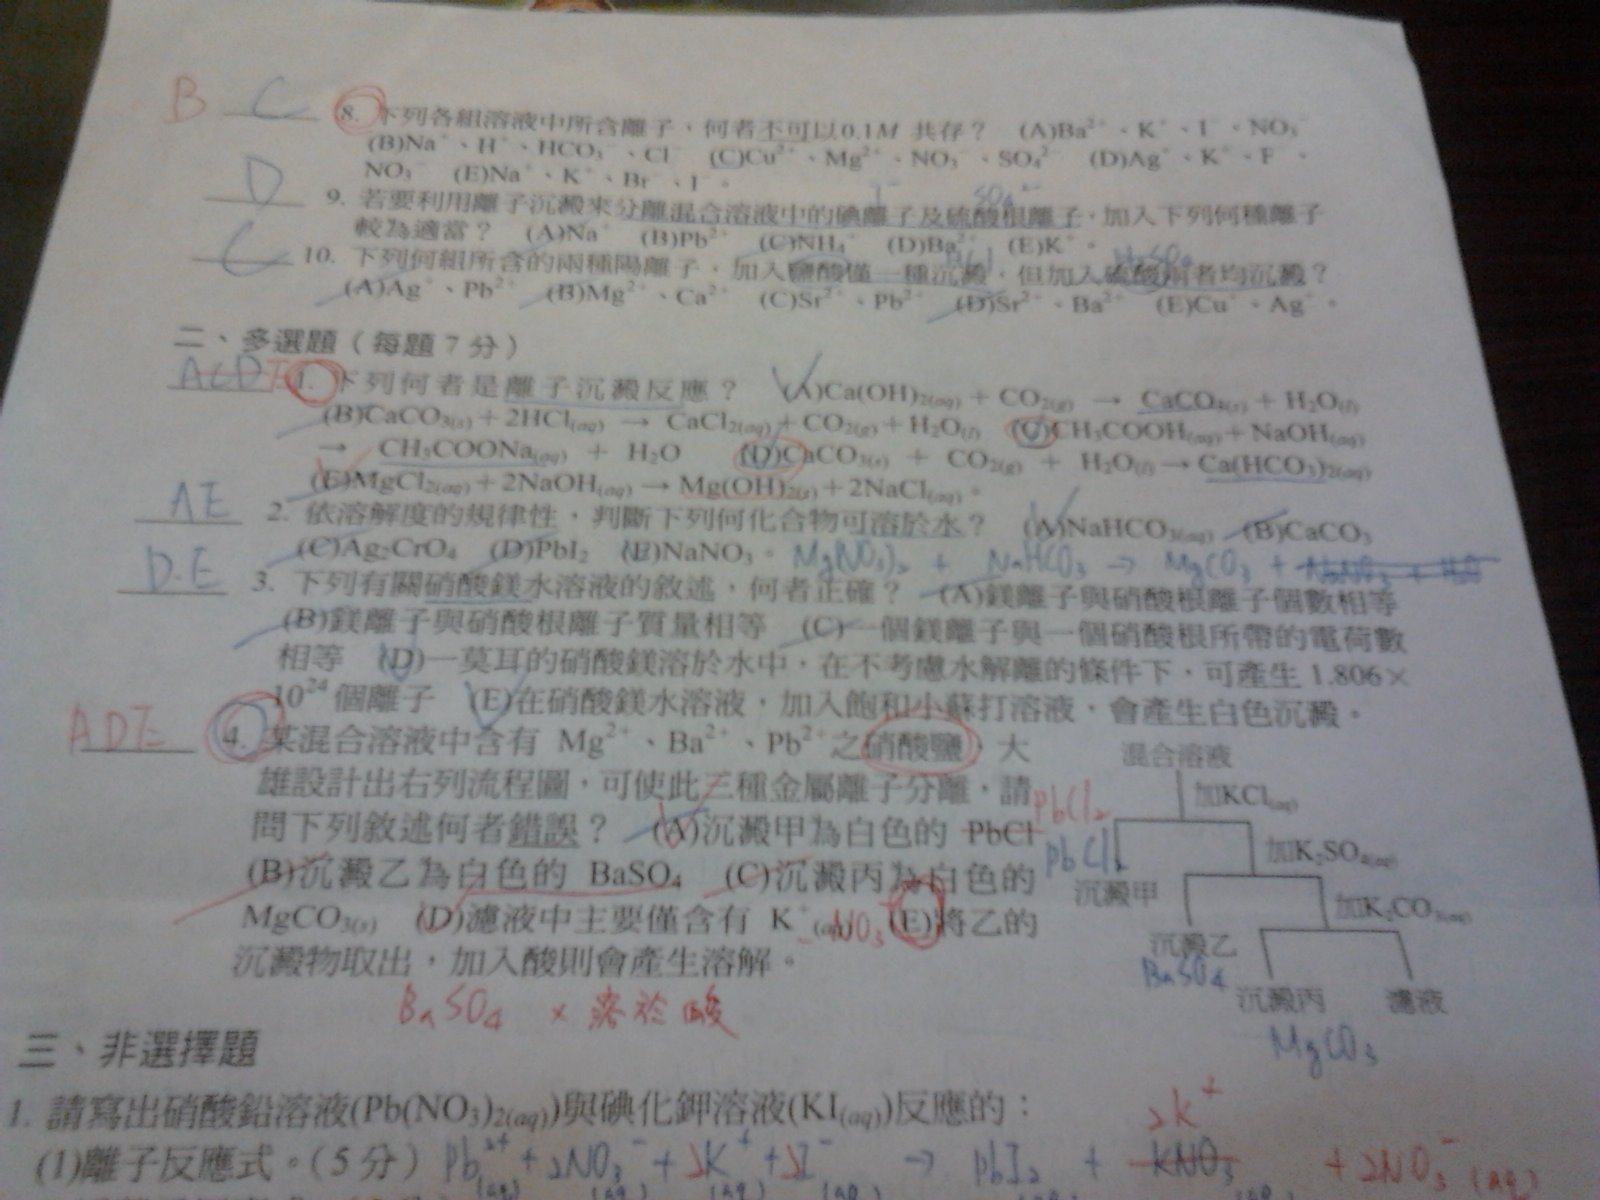 B C 8. 下列各組溶液中所含離子，何者不可以0.1M 共存？ (A)Ba²⁺、K⁺、I⁻、NO₃⁻
(B)Na⁺、H⁺、HCO₃⁻、Cl⁻ (C)Cu²⁺、Mg²⁺、NO₃⁻、SO₄²⁻ (D)Ag⁺、K⁺、F⁻、
NO₃⁻ (E)Na⁺、K⁺、Br⁻、I⁻。
I⁻ SO₄²⁻
D 9. 若要利用離子沉澱來分離混合溶液中的碘離子及硫酸根離子，加入下列何種離子
較為適當？ (A)Na⁺ (B)Pb²⁺ (C)NH₄⁺ (D)Ba²⁺ (E)K⁺。
C 10. 下列何組所含的兩種陽離子，加入鹽酸僅一種沉澱，但加入硫酸兩者均沉澱？
(A)Ag⁺、Pb²⁺ (B)Mg²⁺、Ca²⁺ (C)Sr²⁺、Pb²⁺ (D)Sr²⁺、Ba²⁺ (E)Cu⁺、Ag⁺。
二、多選題（每題7分）
ACDE 1. 下列何者是離子沉澱反應？ (A)Ca(OH)₂(aq) + CO₂(g) → CaCO₃(s) + H₂O(l)
(B)CaCO₃(s) + 2HCl(aq) → CaCl₂(aq) + CO₂(g) + H₂O(l) (C)CH₃COOH(aq) + NaOH(aq)
→ CH₃COONa(aq) + H₂O (D)CaCO₃(s) + CO₂(g) + H₂O(l) → Ca(HCO₃)₂(aq)
(E)MgCl₂(aq) + 2NaOH(aq) → Mg(OH)₂(s) + 2NaCl(aq)。
AE 2. 依溶解度的規律性，判斷下列何化合物可溶於水？ (A)NaHCO₃(aq) (B)CaCO₃
(C)Ag₂CrO₄ (D)PbI₂ (E)NaNO₃。 Mg(NO₃)₂ + NaHCO₃ → MgCO₃ +
D.E 3. 下列有關硝酸鎂水溶液的敘述，何者正確？ (A)鎂離子與硝酸根離子個數相等
(B)鎂離子與硝酸根離子質量相等 (C)一個鎂離子與一個硝酸根所帶的電荷數
相等 (D)一莫耳的硝酸鎂溶於水中，在不考慮水解離的條件下，可產生1.806×
10²⁴個離子 (E)在硝酸鎂水溶液，加入飽和小蘇打溶液，會產生白色沉澱。
ADE 4. 某混合溶液中含有 Mg²⁺、Ba²⁺、Pb²⁺之硝酸鹽，大
雄設計出右列流程圖，可使此三種金屬離子分離，請
問下列敘述何者錯誤？ (A)沉澱甲為白色的 PbCl PbCl₂
(B)沉澱乙為白色的 BaSO₄ (C)沉澱丙為白色的
MgCO₃(s) (D)濾液中主要僅含有 K⁺(aq) NO₃⁻ (E)將乙的
沉澱物取出，加入酸則會產生溶解。
BaSO₄ × 溶於酸
混合溶液
加KCl(aq)
PbCl₂
沉澱甲
加K₂SO₄(aq)
沉澱乙
BaSO₄
加K₂CO₃(aq)
沉澱丙
MgCO₃
濾液
三、非選擇題
1. 請寫出硝酸鉛溶液(Pb(NO₃)₂(aq))與碘化鉀溶液(KI(aq))反應的：
2K⁺
(1)離子反應式。(5分) Pb²⁺ + 2NO₃⁻ + 2K⁺ + 2I⁻ → PbI₂ + KNO₃ + 2NO₃⁻(aq)
(aq) (aq) (aq) (aq)